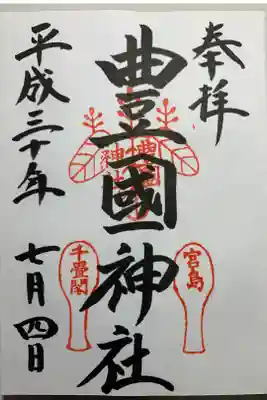 奉拝
豊國神社
宮島
千畳閣
平成三十年
七月四日